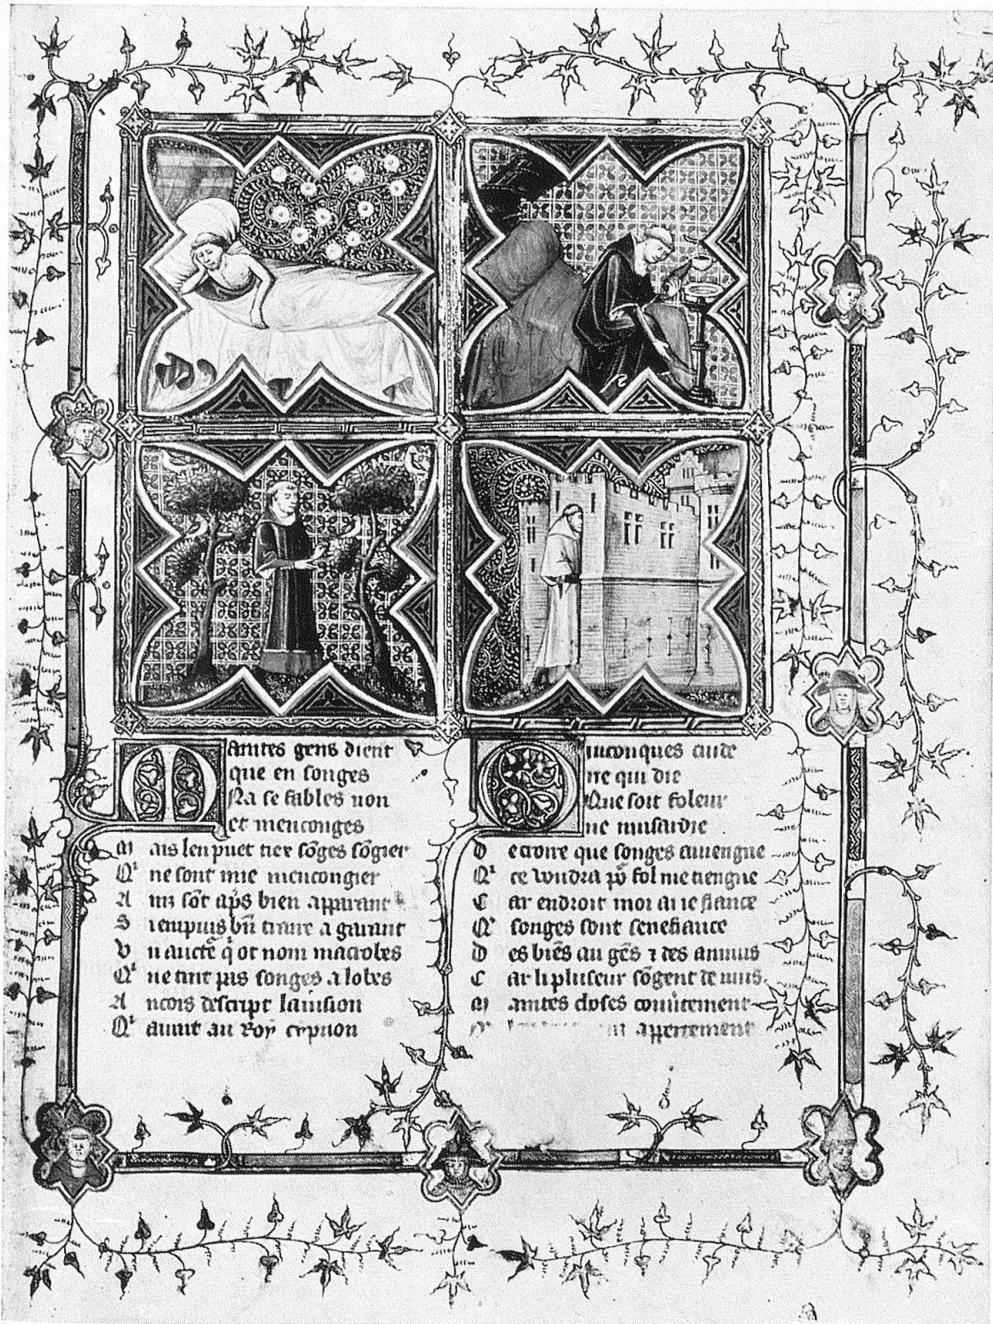 Maintes gens dient
que en songes
Na se fables non
et menconges
Mais len puet tiex sõges sõgier
Qͥ ne sont mie mencongier
Ainz sõt ap̃s bien apparant
Si en puis bñ traire a garant
Un auctẽ q̃ ot nom macrobes
Qͥ ne tint pas songes a lobes
Ancois descript la vision
Qͥ avint au Roy cypion
Quiconques cuide
ne qui die
Que soit foleur
ne musardie
De croire que songes aviengne
Qͥ ce voudra põ fol me tiengne
Car endroit moi ai ie fiance
Qͥ songes sont senefiance
Des biẽs au gẽs ⁊ des annuis
Car li pluseur sõgent de nuis
Maintes choses couṽtement
appertement